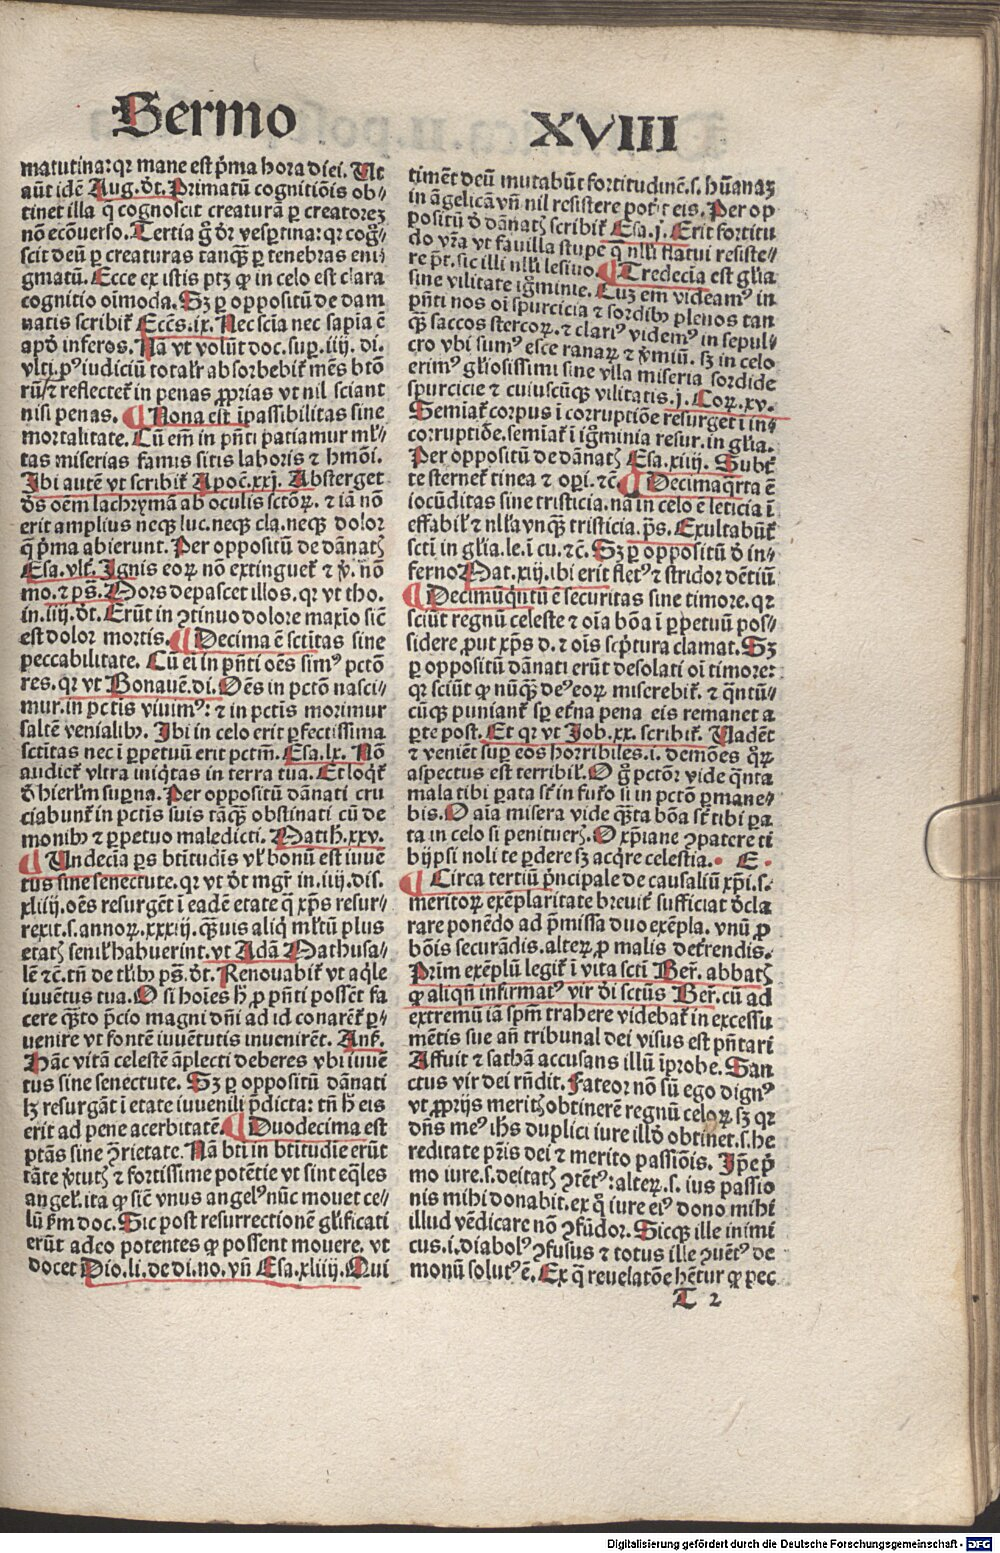 Sermo XVIII
matutina: qꝛ mane est p̄ma hora diei. Ut
aūt idē Aug. d̄t. Primatū cognitiōis ob⸗
tinet illa q̄ cognoscit creaturā ꝑ creatorēꝫ
nō ecōuerso. Tertia g̊ dr̄ vespertina: qꝛ cog̊⸗
scit deū ꝑ creaturas tanqꝫ ꝑ tenebras eni
gmatū. Ecce ex istis ptꝫ ꝙ in celo est clara
cognitio oīmoda. Sꝫ ꝑ oppositū de dam
natis scribit᷑ Eccēs. ix. Nec scīa nec sapīa ē
apd̓ inferos. Nā vt volūt doc. suꝑ. iiij. di.
vlti. pꝰ iudiciū totalr̄ absorbebit᷑ mēs btō
rū/ ⁊ reflectet᷑ in penas ꝓprias vt nil sciant
nisi penas. ¶ Nona est īpassibilitas sine
mortalitate. Cū em̄ in pn̄ti patiamur ml̄⸗
tas miserias famis sitis laboris ⁊ hmōi.
Ibi autē vt scribit᷑ Apoc̄. xxj. Absterget
dō̄s oēm lachrymā ab oculis sctōꝝ. ⁊ iā nō
erit amplius neqꝫ luc. neqꝫ cla. neqꝫ dolor
q̄ p̄ma abierunt. Per oppositū de dānatꝭ
Esa. vlt̄. Ignis eoꝝ nō extinguet᷑ ⁊ v̄. nō
mo. ⁊ ps̄. Mors depascet illos. qꝛ vt tho.
in. iiij. d̄t. Erūt in ꝯtinuo dolore maxīo sic̄
est dolor mortis. ¶ Decima ē sctītas sine
peccabilitate. Cū ei in pn̄ti oēs simꝰ pctō
res. qꝛ vt Bonauē. di. Oēs in pctō nasci⸗
mur. in pctīs viuimꝰ: ⁊ in pctīs morimur
saltē venialibꝰ. Ibi in celo erit ꝑfectissima
sctītas nec ī ꝑpetuū erit pctm̄. Esa. lx. Nō
audiet᷑ vltra iniqͥtas in terra tua. Et loqͥt᷑
d̓ hierl̄m suꝑna. Per oppositū dānati cru
ciabunt᷑ in pctīs suis tāqꝫ obstinati cū de
monibꝰ ⁊ ꝑpetuo maledicti. Matth̄. xxv.
¶ Undecīa ꝑs btītudīs vl̄ bonū est iuuē
tus sine senectute. qꝛ vt d̄t mgr̄ in. iiij. dis.
xliiij. oēs resurgēt ī eadē etate qͣ xp̄s resur⸗
rexit. s. annoꝝ. xxxiij. qͣꝫuis aliqͥ ml̄tū plus
etatꝭ senil᷑ habuerint. vt Adā Mathusa⸗
lē ⁊c. tn̄ de tl̄ibꝰ ps̄. d̄t. Renouabit᷑ vt aqͥle
iuuētus tua. O si hoīes h̓ ꝓ pn̄ti possēt fa
cere qͣꝫto p̄cio magni dn̄i ad id conarēt᷑ ꝑ⸗
uenire vt fontē iuuētutis inuenirēt. Ans̄.
Hāc vitā celestē āplecti deberes vbi iuuē
tus sine senectute. Sꝫ ꝑ oppositū dānati
lꝫ resurgāt ī etate iuuenili p̄dicta: tn̄ h̓ eis
erit ad pene acerbitatē. ¶ Duodecima est
ptās sine ꝯrietate. Nā bti in btītudie erūt
tāte v̓tutꝭ ⁊ fortissime potētie vt sint eqͣles
angel᷑. ita ꝙ sic̄ vnus angelꝰ nūc mouet ce⸗
lū s̄m doc. Sic post resurrectionē gl̄ificati
erūt adeo potentes ꝙ possent mouere. vt
docet Dio. li. de di. no. vn̄ Esa. xliiij. Qui
timēt deū mutabūt fortitudinē. s. hūanaꝫ
in āgelicā vn̄ nil resistere pōt eis. Per op
positū d̓ dānatꝭ scribit᷑ Esa. j. Erit fortitu
do vr̄a vt fauilla stupe q̄ nll̄i flatui resiste⸗
re pt̄. sic illi nll̄i lesiuo. ¶ Tredecīa est gl̄ia
sine vilitate ig̊minie. Cuꝫ em̄ videamꝰ in
pn̄ti nos oī spurcicia ⁊ sordibꝰ plenos tan
qͣꝫ saccos stercoꝝ. ⁊ clariꝰ videmꝰ in sepul⸗
cro vbi sumꝰ esce ranaꝝ ⁊ v̓miū. sꝫ in celo
erimꝰ gl̄iosissimi sine vlla miseria sordide
spurcicie ⁊ cuiuscūqꝫ vilitatis. j. Coꝝ. xv.
Semīat᷑ corpus ī corruptiōe resurget ī in⸗
corruptiōe. semīat᷑ ī ig̊minia resur. in gl̄ia.
Per oppositū de dānatꝭ Esa. xiiij. Subt᷑
te sternet᷑ tinea ⁊ oꝑi. ⁊c̄. ¶ Decimaqͣrta ē
iocūditas sine tristicia. nā in celo ē leticia ī
effabil᷑ ⁊ nl̄la vnqͣꝫ tristicia. ps̄. Exultabūt᷑
scti in gl̄ia. le. ī cu. ⁊c̄. Sꝫ ꝑ oppositū d̓ in⸗
ferno Mat. xiij. ibi erit fletꝰ ⁊ stridor dētiū
¶ Decimūqͥtū ē securitas sine timore. qꝛ
sciūt regnū celeste ⁊ oīa bōa ī ꝑpetuū pos⸗
sidere ꝓut xp̄s d. ⁊ oīs scp̄tura clamat. Sꝫ
ꝑ oppositū dānati erūt desolati oī timore:
qꝛ sciūt ꝙ nūqͣꝫ deꝰ eoꝝ miserebit᷑. ⁊ qͣntū⸗
cūqꝫ puniant᷑ sꝑ et̄na pena eis remanet a
ꝑte post. Et qꝛ vt Iob. xx. scribit᷑. Uadēt
⁊ veniēt suꝑ eos horribiles. i. demōes qͦꝝ
aspectus est terribil᷑. O g̊ pctōr vide qͣnta
mala tibi ꝑata st̄ in futo si in pctō ꝑmane⸗
bis. O aīa misera vide qͣꝫta bōa st̄ tibi ꝑa
ta in celo si penituer̄. O xp̄iane ꝯpatere ti
bijpsi noli te ꝑdere sꝫ acqͥre celestia. E.
¶ Circa tertiū pͥncipale de causaliū xp̄i. s.
meritoꝝ exēplaritate breuit᷑ sufficiat d̓cla
rare ponēdo ad p̄missa duo exēpla. vnū ꝓ
bōis securādis. alteꝝ ꝓ malis det̄rendis.
Prim̄ exēplū legit᷑ ī vita scti Ber̄. abbatꝭ
ꝙ aliqn̄ infirmatꝰ vir d̓i sctūs Ber̄. cū ad
extremū iā spm̄ trahere videbat᷑ in excessu
mētis sue an̄ tribunal dei visus est pn̄tari
Affuit ⁊ sathā accusans illū īprobe. San
ctus vir dei rn̄dit. Fateor nō sū ego dignꝰ
vt ꝓprijs meritꝭ obtinerē regnū celoꝝ. sꝫ qꝛ
dn̄s meꝰ ihs duplici iure illd̓ obtinet. s. he
reditate pr̄is dei ⁊ merito passiōis. Ip̄e pͥ
mo iure. s. deitatꝭ ꝯtētꝰ: alteꝝ. s. ius passio
nis mihi donabit. ex qͦ iure eiꝰ dono mihi
illud vēdicare nō ꝯfūdor. Sicqꝫ ille inimi
cus. i. diabolꝰ ꝯfusus ⁊ totus ille ꝯuētꝰ de
monū solutꝰ ē. Ex qͣ reuelatōe hētur ꝙ pec
T 2
Digitalisierung gefördert durch die Deutsche Forschungsgemeinschaft - DFG